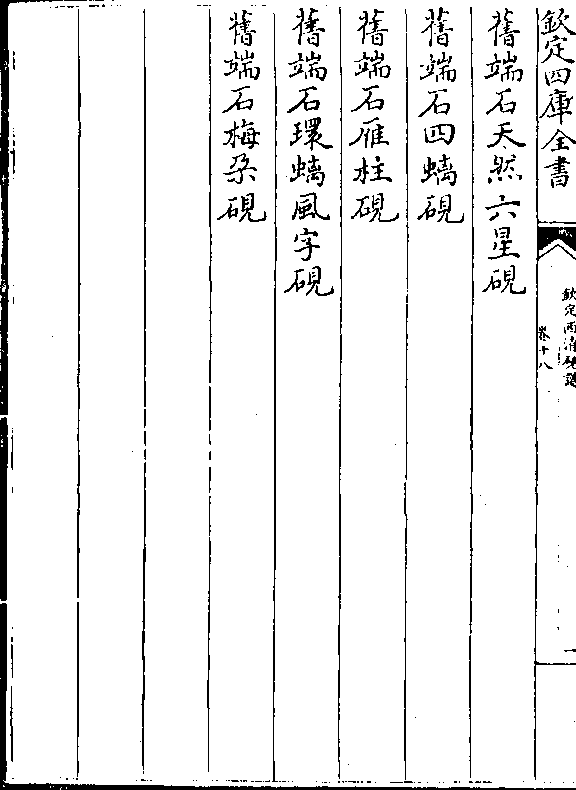 欽定四庫全書
欽定西清硯譜
卷十八
一
舊端石天然六星硯
舊端石四螭硯
舊端石雁柱硯
舊端石環螭風字硯
舊端石梅朶硯